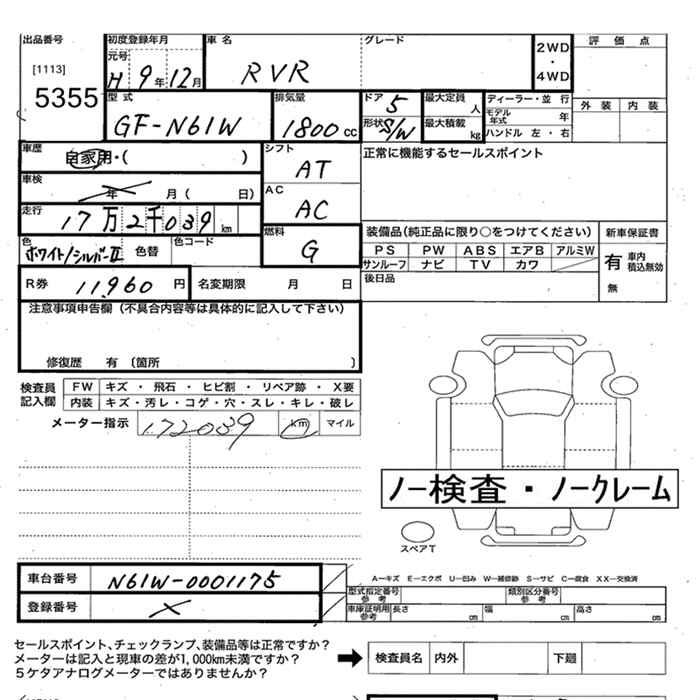 出品番号
[1113]
5355
初度登録年月
元号
H 9年 12月
車名
RVR
グレード
2WD
・
4WD
評価点
外装 内装
型式
GF-N61W
排気量
1800cc
ドア
5
形状
S/W
最大定員
人
最大積載
kg
ディーラー・並 行
モデル年式 年
ハンドル 左・右
車歴
自家用・( )
シフト
AT
正常に機能するセールスポイント
車検
年 月( 日)
AC
AC
走行
17万2千039km
色
ホワイト/シルバーII
色替
色コード
燃料
G
装備品(純正品に限り○をつけてください)
新車保証書
PS PW ABS エアB アルミW
サンルーフ ナビ TV カワ
有 車内積込無効
無
後日品
R券 11,960円
名変期限 月 日
注意事項申告欄(不具合内容等は具体的に記入して下さい)
修復歴 有 〔箇所 〕
検査員記入欄
FW キズ・飛石・ヒビ割・リペア跡・X要
内装 キズ・汚レ・コゲ・穴・スレ・キレ・破レ
メーター指示 172039 km マイル
ノー検査・ノークレーム
スペアT
車台番号 N61W-0001175
登録番号 X
A-キズ E-エクボ U-凹み W-補修跡 S-サビ C-腐食 XX-交換済
型式指定番号参考
類別区分番号参考
車庫証明用参考 長さ cm 幅 cm 高さ cm
セールスポイント、チェックランプ、装備品等は正常ですか?
メーターは記入と現車の差が1,000km未満ですか?
5ケタアナログメーターではありませんか?
検査員名 内外 下廻